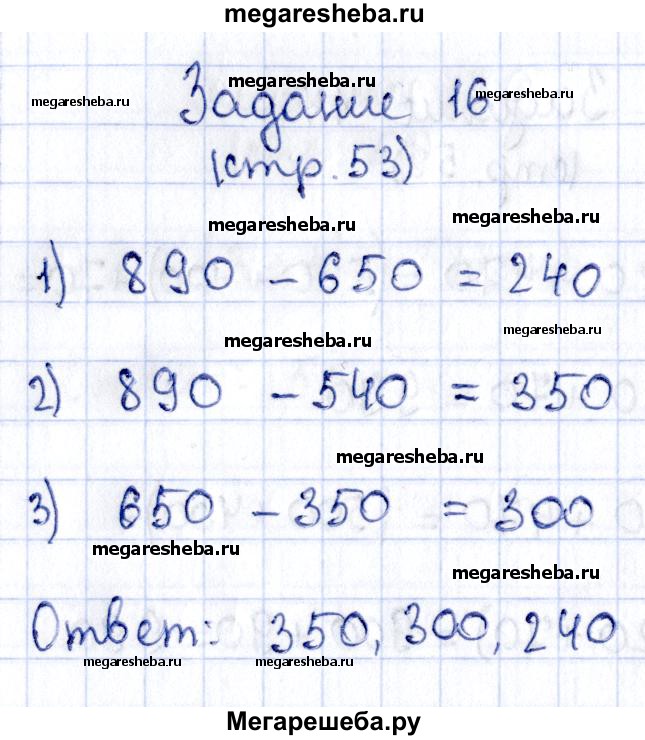 megaresheba.ru
megaresheba.ru
megaresheba.ru
megaresheba.ru
Задание 16
(стр. 53)
megaresheba.ru
megaresheba.ru
1) 890 - 650 = 240
megaresheba.ru
megaresheba.ru
2) 890 - 540 = 350
megaresheba.ru
3) 650 - 350 = 300
megaresheba.ru
megaresheba.ru
Ответ: 350, 300, 240
megaresheba.ru
megaresheba.ru
Мегарешеба.ру